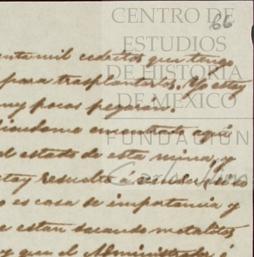 CENTRO DE
ESTUDIOS
DE HISTORIA
DE MÉXICO
FUNDACIÓN
Carlos Slim
66
enta mil cedritos que tengo
para trasplantarlos. Yo estoy
muy pocos pegaran.
encontrado aquí
el estado de esta mina, y
estoy resuelto á
es cosa de importancia y
e estan sacando metalitos
y que el Administrador